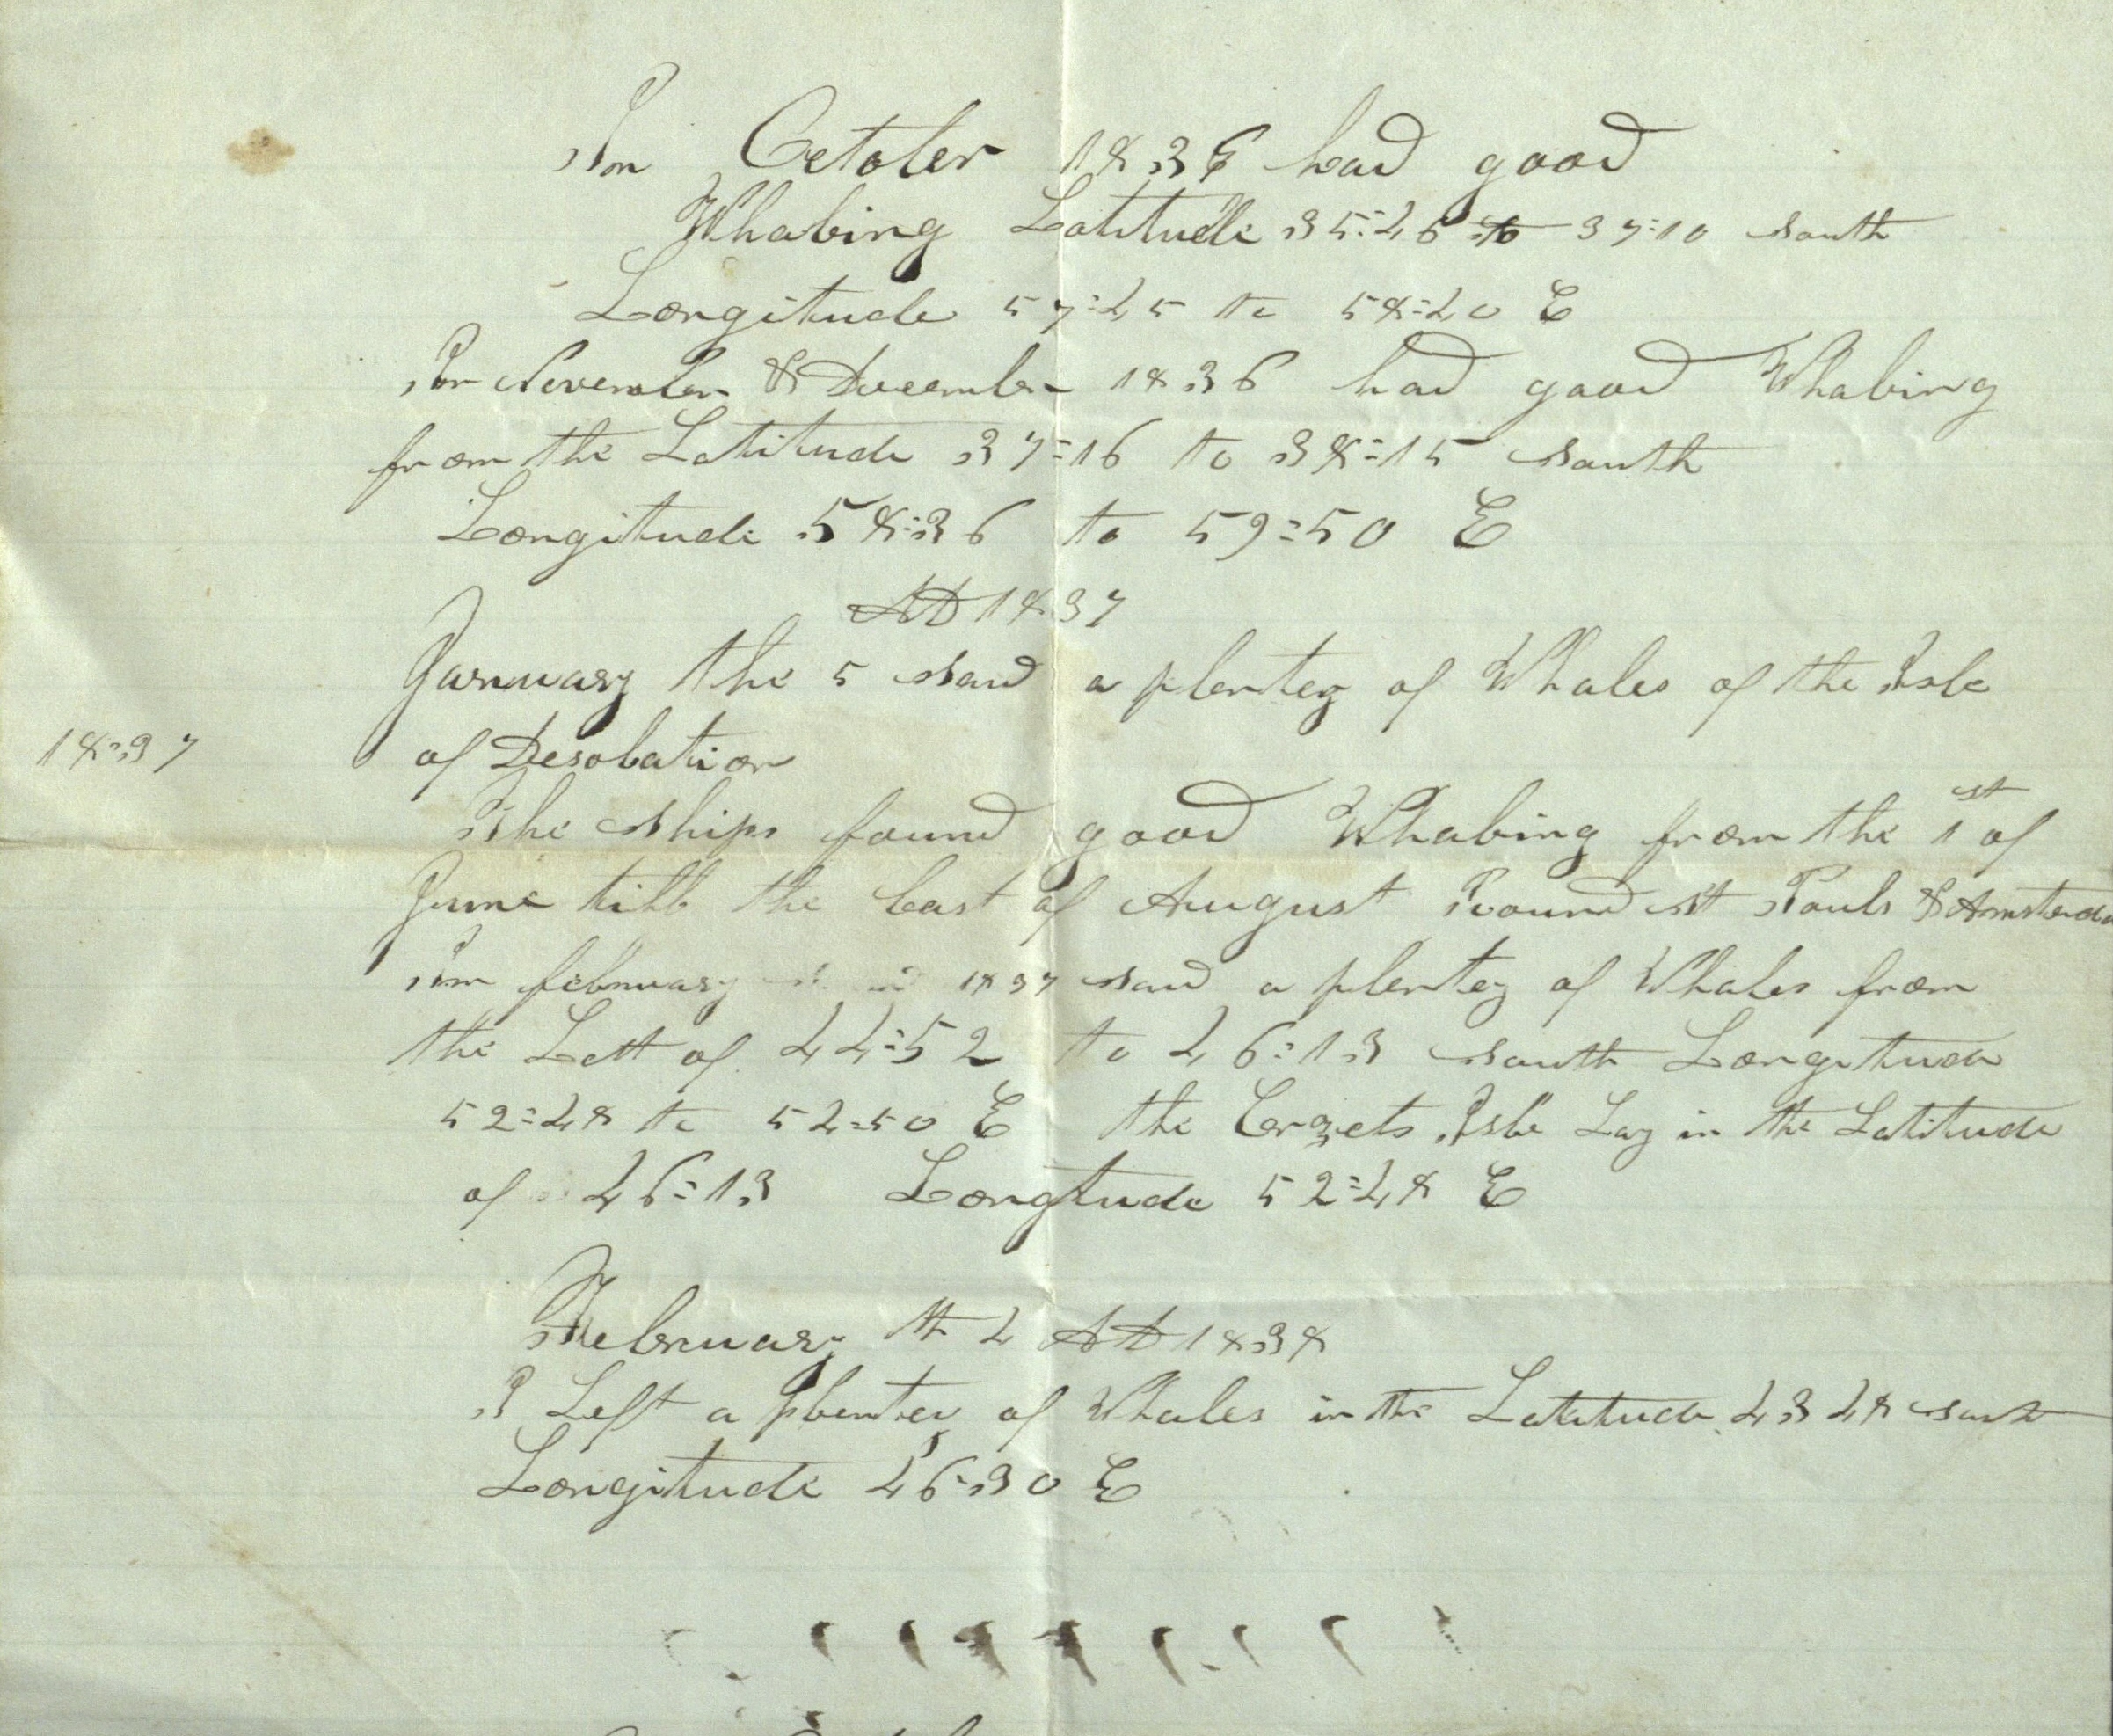 In October 1836 had good
Whaling Latitude 35=46 to 37=10 South
Longitude 57=45 to 58=40 E
In November & December 1836 had good Whaling
from the Latitude 37=16 to 38=15 South
Longitude 58=36 to 59=50 E
AD 1837
January the 5 Saw a plentey of Whales of the Isle
1837 of Desolation
The Ships found good Whaling from the 1st of
June till the last of August Round St Pauls & Amsterdam
In february 1837 Saw a plentey of Whales from
the Latt of 44=52 to 46=13 South Longitude
52=48 to 54=50 E the Crozets Isle Lay in the Latitude
of 46=13 Longtude 52=48 E
February th 4 AD 1838
I Left a plentey of Whales in the Latitude 43 48 South
Longitude 46=30 E